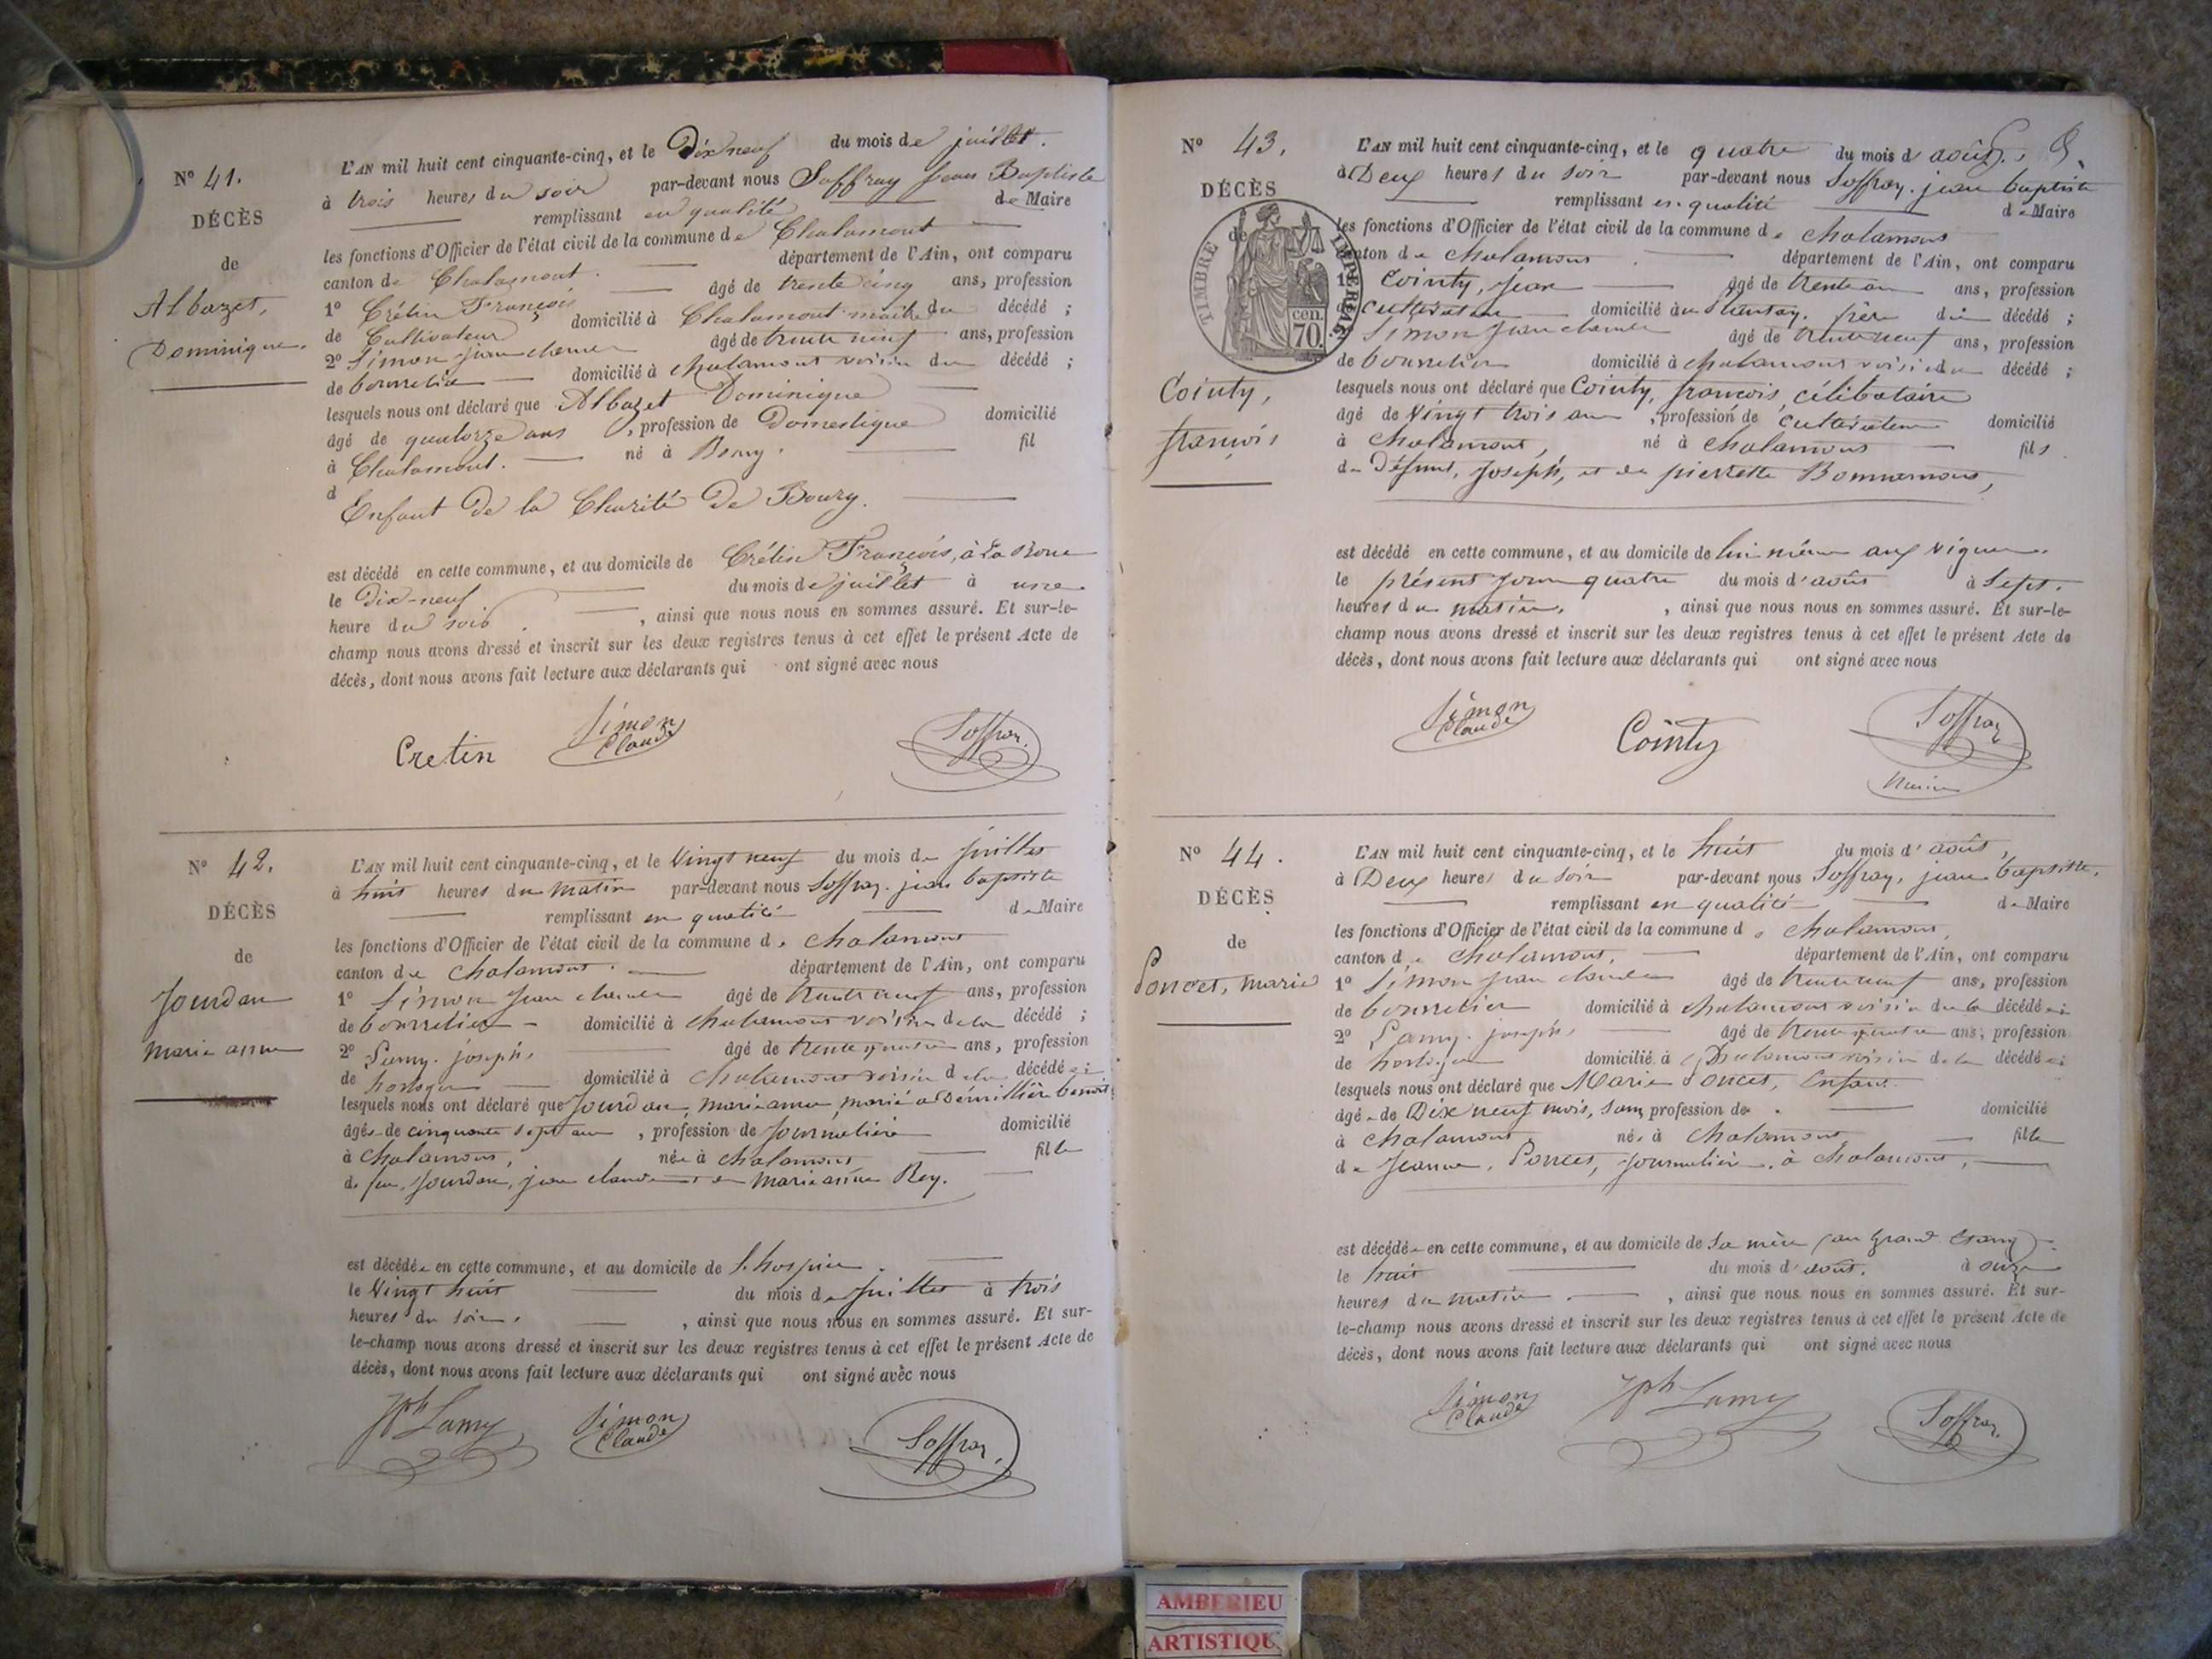 N° 41.
DÉCÈS
de
Albazet,
Dominique.
L'AN mil huit cent cinquante-cinq, et le Dix neuf du mois de juillet.
à trois heures du soir par-devant nous Soffray Jean Baptiste
remplissant en qualité de Maire
les fonctions d'Officier de l'état civil de la commune de Chalamont
canton de Chalamont. département de l'Ain, ont comparu
1° Crétin François âgé de trente cinq ans, profession
de Cultivateur domicilié à Chalamont maitre du décédé ;
2° Simon jean claude âgé de trente neuf ans, profession
de bourrelier domicilié à chalamont voisin du décédé ;
lesquels nous ont déclaré que Albazet Dominique
âgé de quatorze ans , profession de Domestique domicilié
à Chalamont. né à Bourg. fil
d Enfant de la Charité de Bourg.
est décédé en cette commune, et au domicile de Crétin François, à La
le dix-neuf du mois de juillet à une
heure du soir. , ainsi que nous nous en sommes assuré. Et sur-le-
champ nous avons dressé et inscrit sur les deux registres tenus à cet effet le présent Acte de
décès, dont nous avons fait lecture aux déclarants qui ont signé avec nous
Cretin Simon Claude Soffray
N° 42.
DÉCÈS
de
Jourdan
marie anne
L'AN mil huit cent cinquante-cinq, et le Vingt neuf du mois de juillet
à huit heures du matin par-devant nous Soffray. jean baptiste
remplissant en qualité de Maire
les fonctions d'Officier de l'état civil de la commune de chalamont
canton de chalamont. département de l'Ain, ont comparu
1° Simon Jean claude âgé de trente neuf ans, profession
de bourrelier domicilié à chalamont voisin de la décédé ;
2° Lamy. joseph, âgé de trente quatre ans, profession
de horloger domicilié à chalamont voisin de la décédée
lesquels nous ont déclaré que Jourdan, marie anne, marié a benoit
âgée de cinquante sept ans , profession de journalière domicilié
à chalamont, née à chalamont fille
de feu, Jourdan, jean claude et de marie anne Rey.
est décédée en cette commune, et au domicile de L'hospice.
le Vingt huit du mois de juillet à trois
heures du soir. , ainsi que nous nous en sommes assuré. Et sur-
le-champ nous avons dressé et inscrit sur les deux registres tenus à cet effet le présent Acte de
décès, dont nous avons fait lecture aux déclarants qui ont signé avec nous
Jph Lamy Simon Claude Soffray
N° 43.
DÉCÈS
de
TIMBRE IMPERIAL
cen. 70.
Cointy,
françois
L'AN mil huit cent cinquante-cinq, et le quatre du mois d'août.
à Deux heures du soir par-devant nous Soffray. jean baptiste
remplissant en qualité de Maire
les fonctions d'Officier de l'état civil de la commune de chalamont
canton de chalamont. département de l'Ain, ont comparu
1° Cointy, jean âgé de trente ans, profession
cultivateur domicilié au frère du décédé ;
2° Simon Jean claude âgé de trente neuf ans, profession
de bourrelier domicilié à chalamont voisin du décédé ;
lesquels nous ont déclaré que Cointy, françois, célibataire
âgé de Vingt trois ans , profession de cultivateur domicilié
à chalamont, né à chalamont fils
de Défunt, Joseph, et de pierrette Bonnamour,
est décédé en cette commune, et au domicile de lui même aux vignes.
le présent jour quatre du mois d'août à Sept.
heures du matin. , ainsi que nous nous en sommes assuré. Et sur-le-
champ nous avons dressé et inscrit sur les deux registres tenus à cet effet le présent Acte de
décès, dont nous avons fait lecture aux déclarants qui ont signé avec nous
Simon Claude Cointy Soffray
Maire
N° 44.
DÉCÈS
de
Poncet, marie
L'AN mil huit cent cinquante-cinq, et le huit du mois d'août,
à Deux heures du soir par-devant nous Soffray, jean baptiste,
remplissant en qualité de Maire
les fonctions d'Officier de l'état civil de la commune de chalamont,
canton de chalamont, département de l'Ain, ont comparu
1° Simon jean claude âgé de trente neuf ans, profession
de bourrelier domicilié à chalamont voisin de la décédée
2° Lamy. joseph, âgé de trente quatre ans, profession
de horloger domicilié à Chalamont voisin de la décédée
lesquels nous ont déclaré que Marie Poncet, Enfant.
âgée de Dix neuf mois, sans profession de domicilié
à chalamont, née à chalamont fille
de Jeanne, Poncet, journalière, à chalamont,
est décédée en cette commune, et au domicile de Sa mère (au Grand Etang).
le huit du mois d'août. à onze
heures du matin. , ainsi que nous nous en sommes assuré. Et sur-
le-champ nous avons dressé et inscrit sur les deux registres tenus à cet effet le présent Acte de
décès, dont nous avons fait lecture aux déclarants qui ont signé avec nous
Simon Claude Jph Lamy Soffray
AMBERIEU
ARTISTIQU